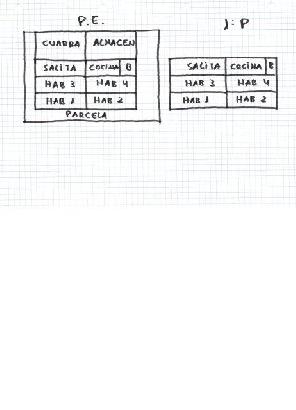 P.E.
CUADRA ALMACEN
SALITA COCINA B
HAB 3 HAB 4
HAB 1 HAB 2
PARCELA
1: P
SALITA COCINA B
HAB 3 HAB 4
HAB 1 HAB 2